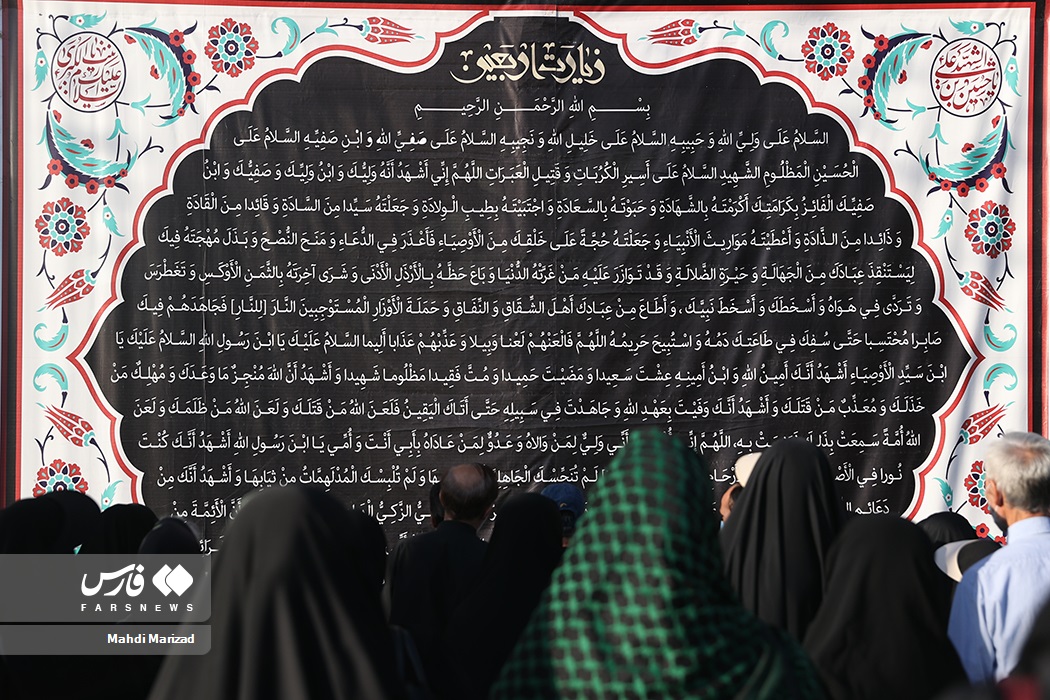 زيارت اربعين
بِسْـــمِ اللهِ الرَّحْمَـــنِ الرَّحِيـــمِ
السَّلامُ عَلَى وَلِيِّ اللهِ وَ حَبِيبِهِ السَّلامُ عَلَى خَلِيلِ اللهِ وَ نَجِيبِهِ السَّلامُ عَلَى صَفِيِّ اللهِ وَ ابْنِ صَفِيِّهِ السَّلامُ عَلَى
الْحُسَيْنِ الْمَظْلُومِ الشَّهِيدِ السَّلامُ عَلَى أَسِيرِ الْكُرُبَاتِ وَ قَتِيلِ الْعَبَرَاتِ اللَّهُمَّ إِنِّي أَشْهَدُ أَنَّهُ وَلِيُّكَ وَ ابْنُ وَلِيِّكَ وَ صَفِيُّكَ وَ ابْنُ
صَفِيِّكَ الْفَائِزُ بِكَرَامَتِكَ أَكْرَمْتَهُ بِالشَّهَادَةِ وَ حَبَوْتَهُ بِالسَّعَادَةِ وَ اجْتَبَيْتَهُ بِطِيبِ الْوِلادَةِ وَ جَعَلْتَهُ سَيِّدا مِنَ السَّادَةِ وَ قَائِدا مِنَ الْقَادَةِ
وَ ذَائِدا مِنَ الذَّادَةِ وَ أَعْطَيْتَهُ مَوَارِيثَ الْأَنْبِيَاءِ وَ جَعَلْتَهُ حُجَّةً عَلَى خَلْقِكَ مِنَ الْأَوْصِيَاءِ فَأَعْذَرَ فِي الدُّعَاءِ وَ مَنَحَ النُّصْحَ وَ بَذَلَ مُهْجَتَهُ فِيكَ
لِيَسْتَنْقِذَ عِبَادَكَ مِنَ الْجَهَالَةِ وَ حَيْرَةِ الضَّلالَةِ وَ قَدْ تَوَازَرَ عَلَيْهِ مَنْ غَرَّتْهُ الدُّنْيَا وَ بَاعَ حَظَّهُ بِالْأَرْذَلِ الْأَدْنَى وَ شَرَى آخِرَتَهُ بِالثَّمَنِ الْأَوْكَسِ وَ تَغَطْرَسَ
وَ تَرَدَّى فِي هَوَاهُ وَ أَسْخَطَكَ وَ أَسْخَطَ نَبِيَّكَ، وَ أَطَاعَ مِنْ عِبَادِكَ أَهْلَ الشِّقَاقِ وَ النِّفَاقِ وَ حَمَلَةَ الْأَوْزَارِ الْمُسْتَوْجِبِينَ النَّارَ [لِلنَّارِ] فَجَاهَدَهُمْ فِيكَ
صَابِرا مُحْتَسِبا حَتَّى سُفِكَ فِي طَاعَتِكَ دَمُهُ وَ اسْتُبِيحَ حَرِيمُهُ اللَّهُمَّ فَالْعَنْهُمْ لَعْنا وَبِيلا وَ عَذِّبْهُمْ عَذَابا أَلِيما السَّلامُ عَلَيْكَ يَا ابْنَ رَسُولِ اللهِ السَّلامُ عَلَيْكَ يَا
ابْنَ سَيِّدِ الْأَوْصِيَاءِ أَشْهَدُ أَنَّكَ أَمِينُ اللهِ وَ ابْنُ أَمِينِهِ عِشْتَ سَعِيدا وَ مَضَيْتَ حَمِيدا وَ مُتَّ فَقِيدا مَظْلُوما شَهِيدا وَ أَشْهَدُ أَنَّ اللهَ مُنْجِزٌ مَا وَعَدَكَ وَ مُهْلِكٌ مَنْ
خَذَلَكَ وَ مُعَذِّبٌ مَنْ قَتَلَكَ وَ أَشْهَدُ أَنَّكَ وَفَيْتَ بِعَهْدِ اللهِ وَ جَاهَدْتَ فِي سَبِيلِهِ حَتَّى أَتَاكَ الْيَقِينُ فَلَعَنَ اللهُ مَنْ قَتَلَكَ وَ لَعَنَ اللهُ مَنْ ظَلَمَكَ وَ لَعَنَ
اللهُ أُمَّةً سَمِعَتْ بِذَلِكَ فَرَضِيَتْ بِهِ، اللَّهُمَّ إِنِّي أَنِّي وَلِيٌّ لِمَنْ وَالاهُ وَ عَدُوٌّ لِمَنْ عَادَاهُ بِأَبِي أَنْتَ وَ أُمِّي يَا ابْنَ رَسُولِ اللهِ أَشْهَدُ أَنَّكَ كُنْتَ
نُورا فِي لَمْ تُنَجِّسْكَ وَ لَمْ تُلْبِسْكَ الْمُدْلَهِمَّاتُ مِنْ ثِيَابِهَا وَ أَشْهَدُ أَنَّكَ مِنْ
دَعَائِمِ الزَّكِيُّ الْأَئِمَّةَ مِنْ
فارس
FARSNEWS
Mahdi Marizad